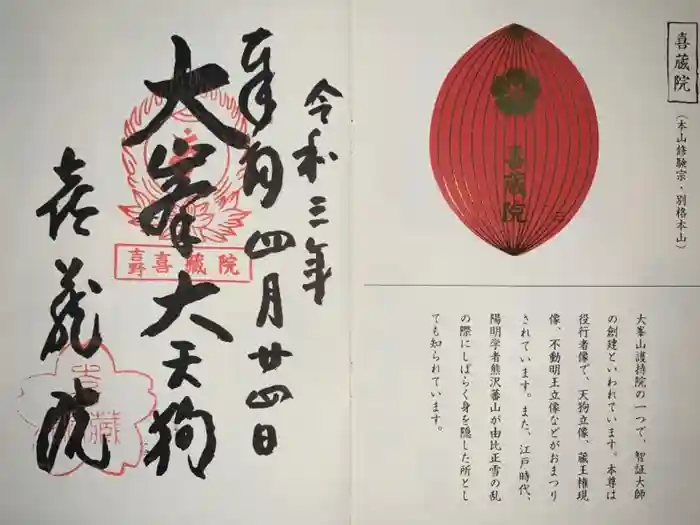 喜蔵院
(本山修験宗・別格本山)
喜蔵院
大峯山護持院の一つで、智証大師
の創建といわれています。本尊は
役行者像で、天狗立像、蔵王権現
像、不動明王立像などがおまつり
されています。また、江戸時代、
陽明学者熊沢蕃山が由比正雪の乱
の際にしばらく身を隠した所とし
ても知られています。
令和三年
奉拝 四月廿四日
大峯大天狗
吉野 喜蔵院
喜蔵院